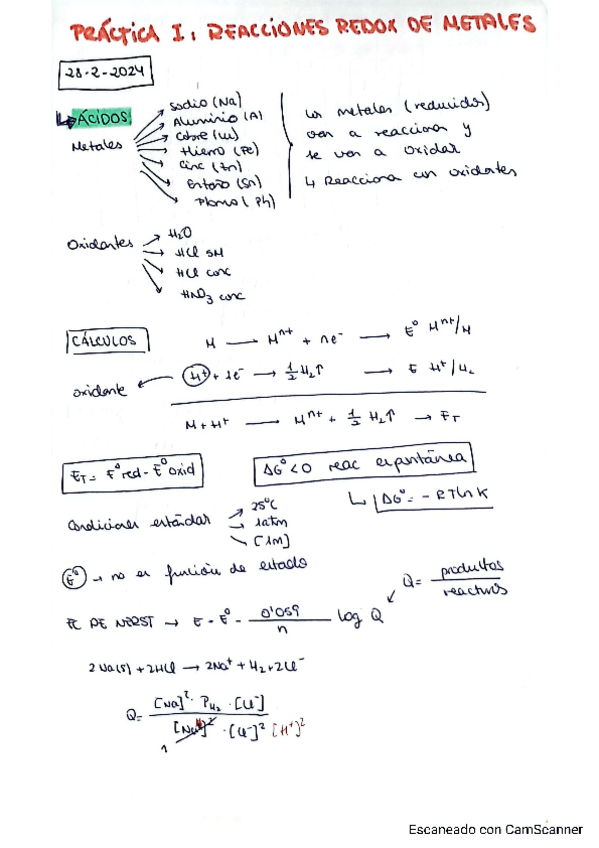 PRÁCTICA I: REACCIONES REDOX DE METALES
28-2-2024
↳ ÁCIDOS:
Metales
Sodio (Na)
Aluminio (Al)
Cobre (Cu)
Hierro (Fe)
Cinc (Zn)
Estaño (Sn)
Plomo (Pb)
Los metales (reducidos)
van a reaccionar y
se van a oxidar
↳ Reacciona con oxidantes
Oxidantes
H₂O
HCl 5M
HCl conc
HNO₃ conc
CÁLCULOS
M → Mⁿ⁺ + ne⁻ → E⁰ Mⁿ⁺/M
oxidante ← H⁺ + 1e⁻ → ½ H₂↑ → E H⁺/H₂
M + H⁺ → Mⁿ⁺ + ½ H₂↑ → E_T
E_T = E⁰red - E⁰oxid
ΔG⁰<0 reac espontánea
↳ ΔG⁰ = -RTlnK
Condiciones estándar
25ºC
1atm
[1M]
E⁰ → no es función de estado
Q = productos / reactivos
EC DE NERST → E = E⁰ - 0'059 / n log Q
2Na(s) + 2HCl → 2Na⁺ + H₂ + 2Cl⁻
Q = [Na]²· P_H₂ · [Cl⁻] / [Na]² · [Cl⁻]² [H⁺]²
1
Escaneado con CamScanner